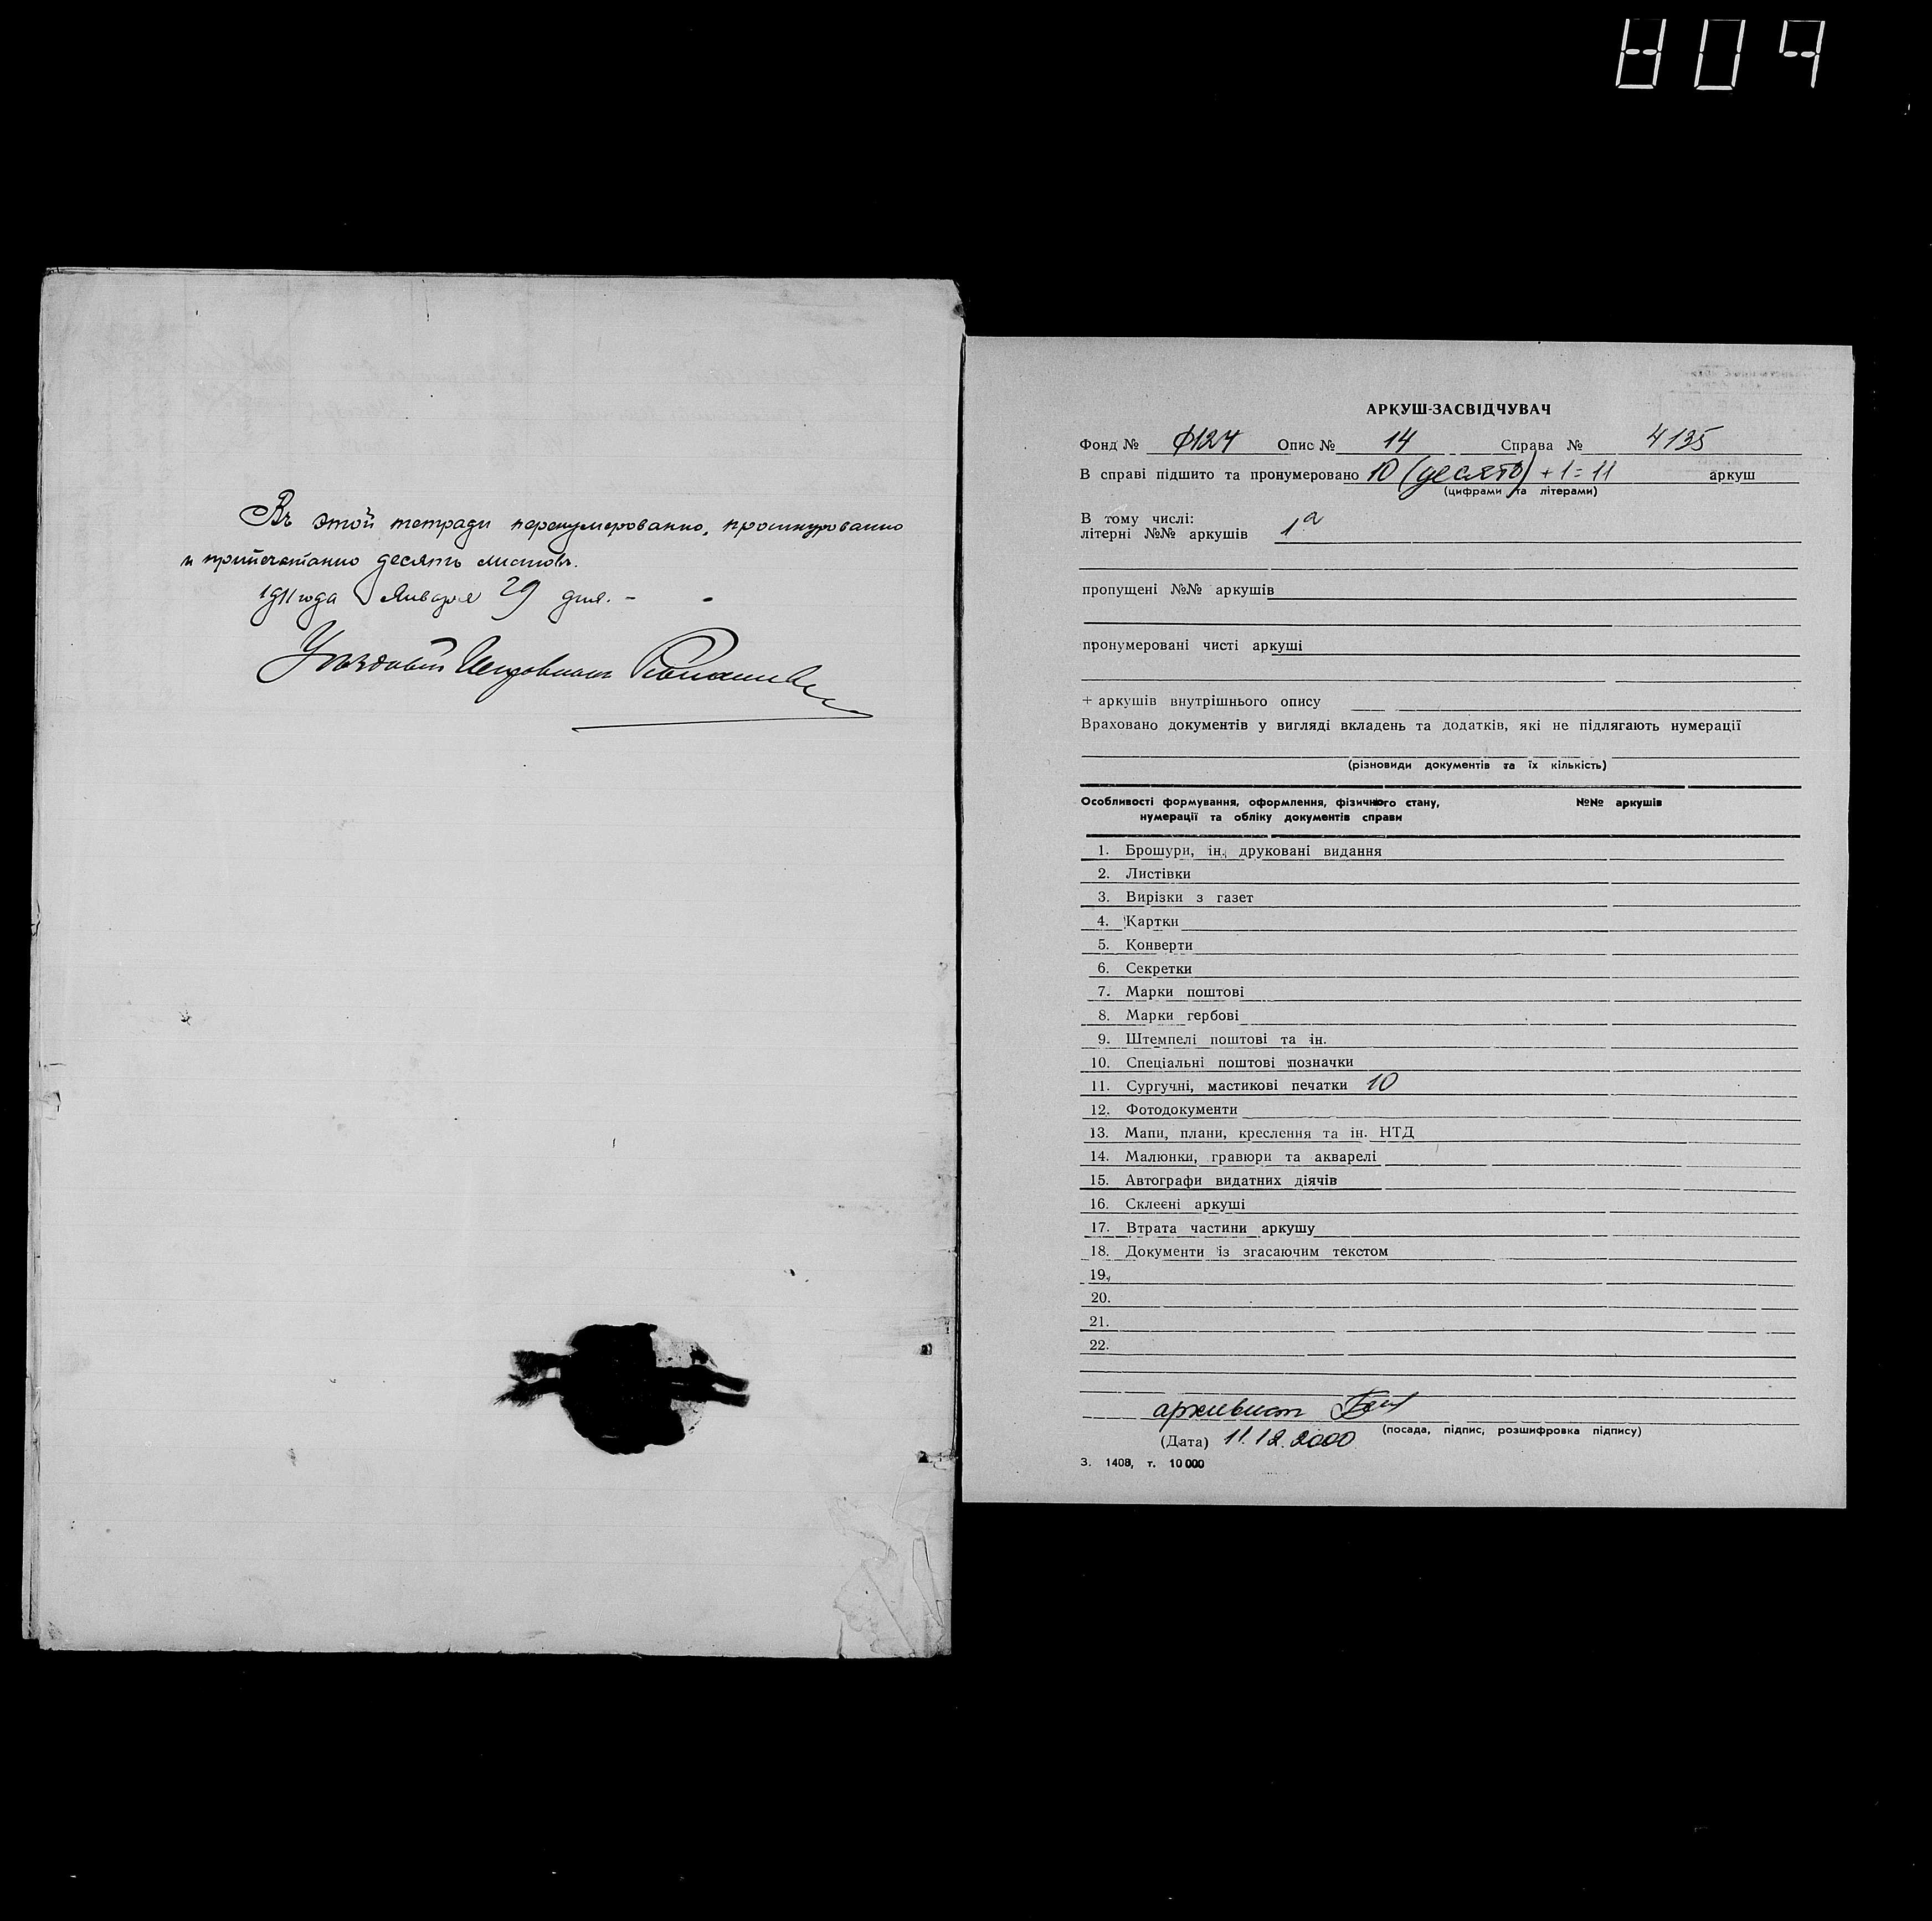 804
Въ этой тетради перенумерованно, прошнурованно
и припечатанно десять листовъ.
1911 года Января 29 дня. -
Уѣздный
АРКУШ-ЗАСВІДЧУВАЧ
Фонд № Ф127 Опис № 14 Справа № 4135
В справі підшито та пронумеровано 10 (десять) + 1 = 11 аркуш
(цифрами та літерами)
В тому числі:
літерні №№ аркушів 1а
пропущені №№ аркушів
пронумеровані чисті аркуші
+ аркушів внутрішнього опису
Враховано документів у вигляді вкладень та додатків, які не підлягають нумерації
(різновиди документів та їх кількість)
Особливості формування, оформлення, фізичного стану, №№ аркушів
нумерації та обліку документів справи
1. Брошури, ін. друковані видання
2. Листівки
3. Вирізки з газет
4. Картки
5. Конверти
6. Секретки
7. Марки поштові
8. Марки гербові
9. Штемпелі поштові та ін.
10. Спеціальні поштові позначки
11. Сургучні, мастикові печатки 10
12. Фотодокументи
13. Мапи, плани, креслення та ін. НТД
14. Малюнки, гравюри та акварелі
15. Автографи видатних діячів
16. Склеєні аркуші
17. Втрата частини аркушу
18. Документи із згасаючим текстом
19.
20.
21.
22.
архивист
(посада, підпис, розшифровка підпису)
(Дата) 11.12.2000
З. 1408, т. 10 000